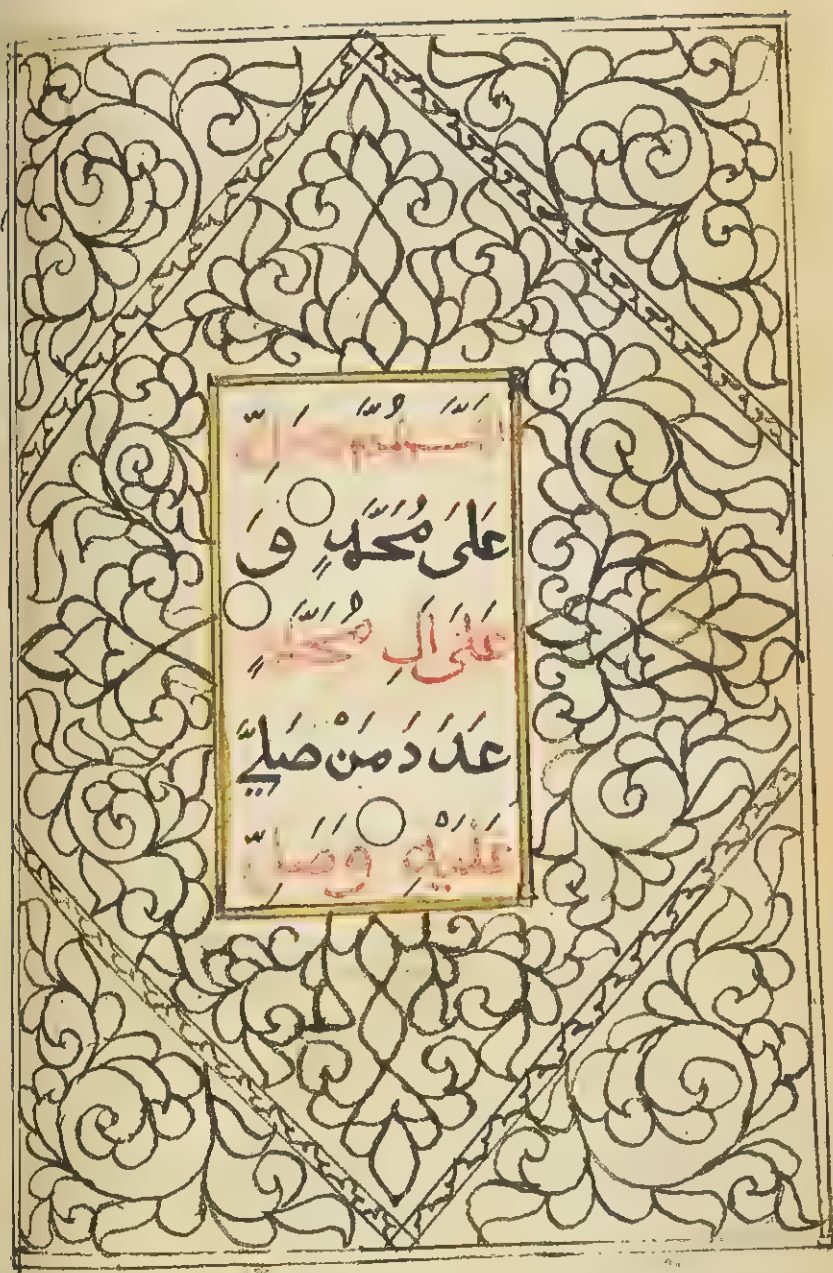 اَللّٰهُمَّ صَلِّ
عَلَى مُحَمَّدٍ وَ
عَلَى اَلِ مُحَمَّدٍ
عَدَدَ مَنْ صَلَّي
عَلَيْهِ وَصَلِّ